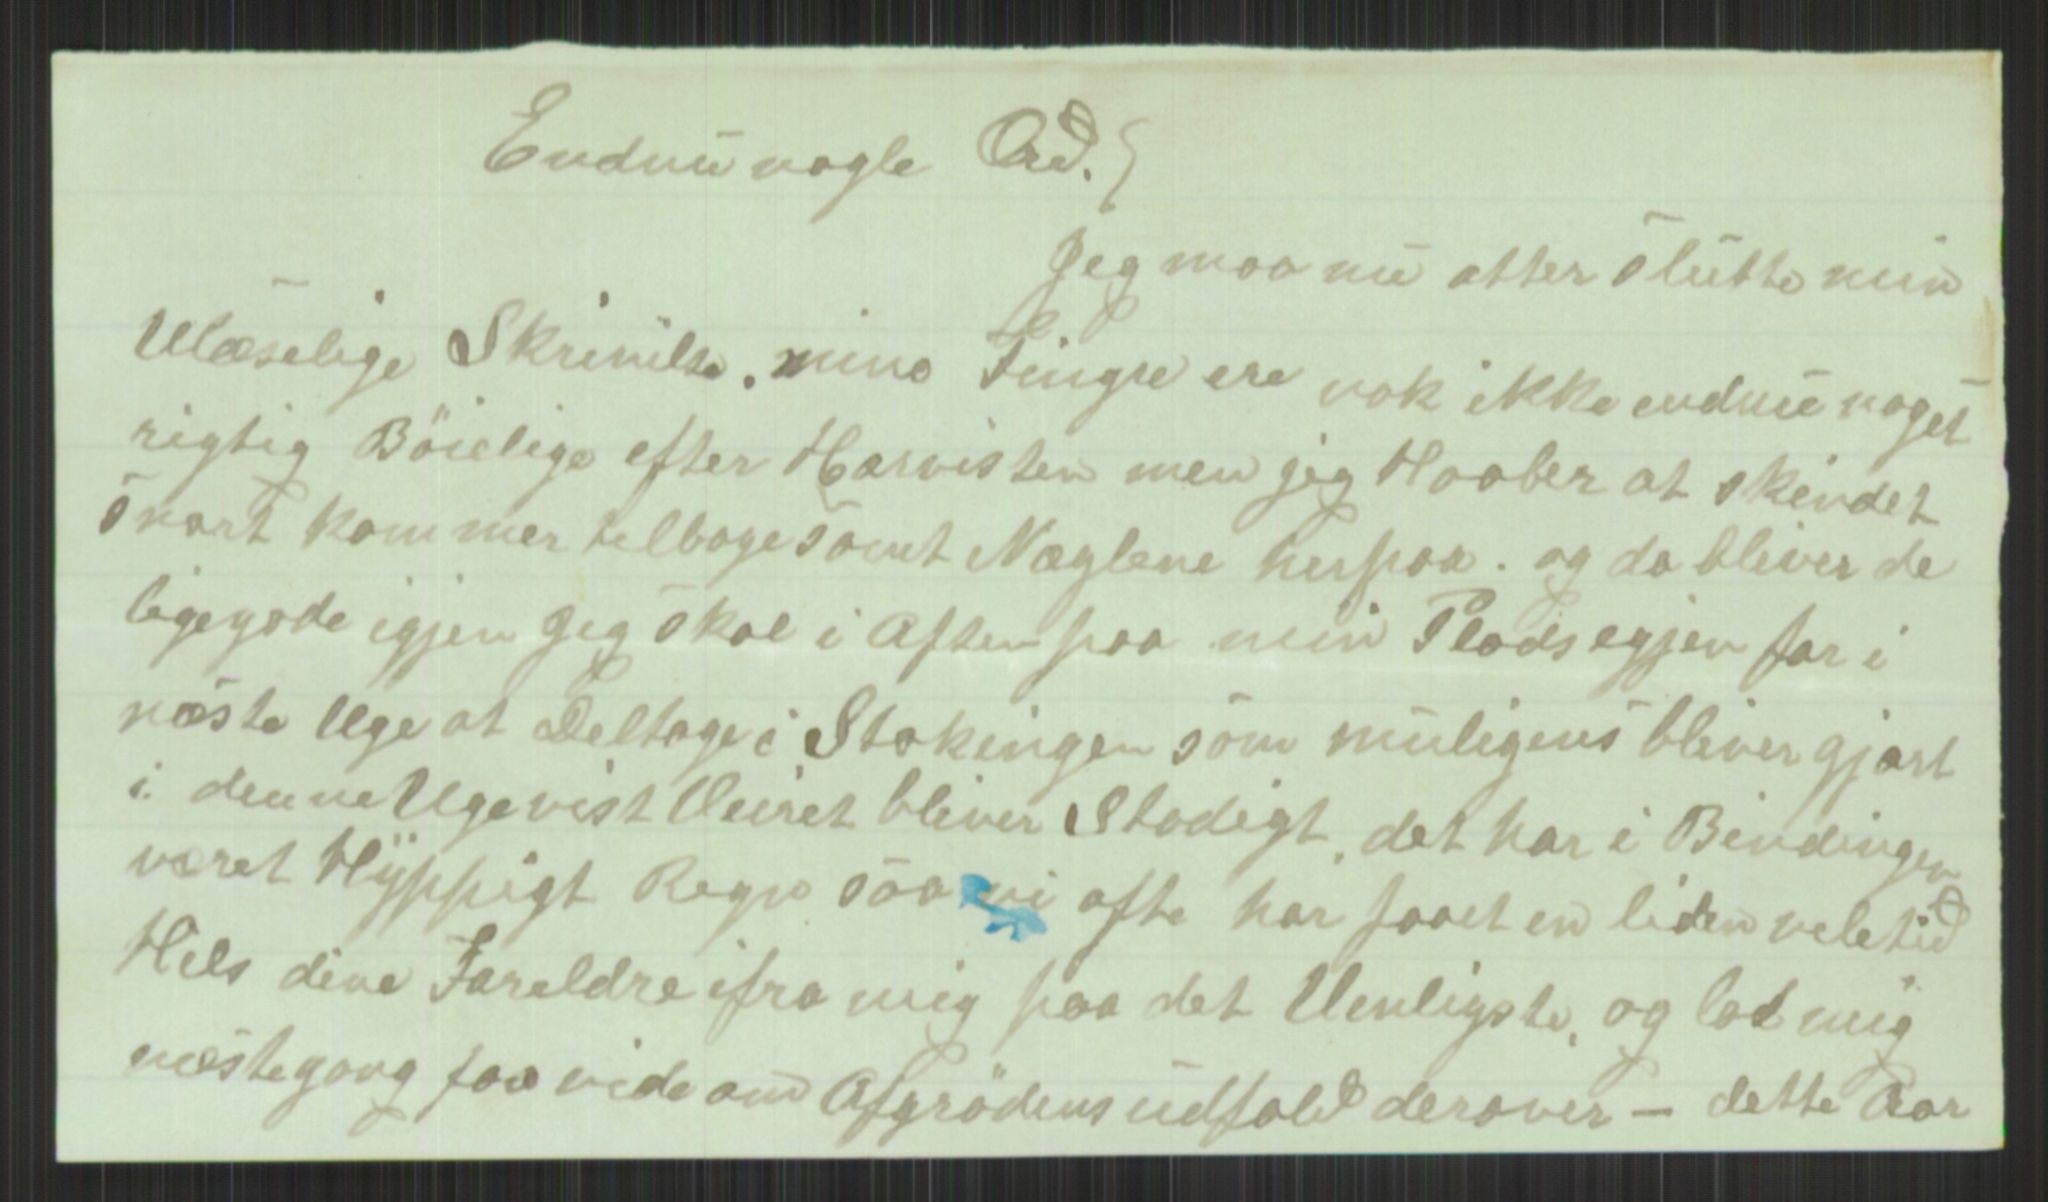 Endnu nogle Ord.
Jeg maa nu atter slutte min
Ulæselige Skrivelse. mine Fingre ere nok ikke endnu noget
rigtig Böielige efter Harvisten men jeg Haaber at skindet
snart kommer telbage samt Næglene herpaa. og da bliver de
ligegode igjen Jeg skal i Aften paa min Plads egjen for i
næste Uge at Deltage i Stakingen som muligens bliver gjort
i denne Uge vist Veiret bliver Stadigt, det har i Bindingen
været Hÿppigt Regn saa vi ofte har faaet en liden veletid
Hils dine Foreldre ifra mig paa det Venligste, og lad mig
næstegang faa vide om Afgrödens udfald derover - dette Aar